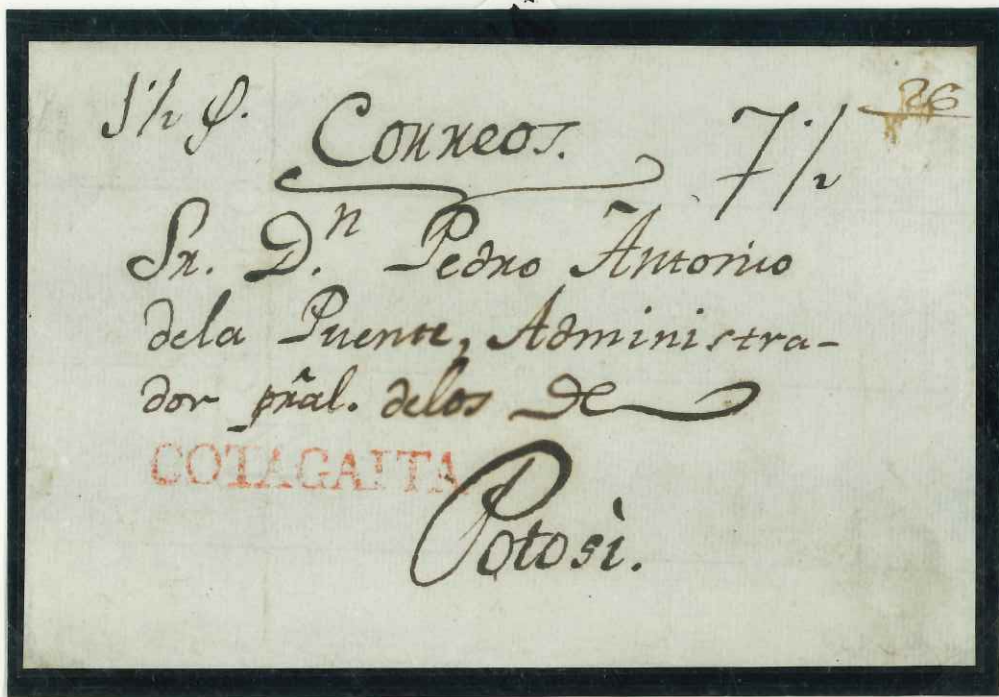 Correos. 7 1/2 26
Sr. D.n Pedro Antonio
dela Puente, Administra-
dor pñal. delos de
COTAGAITA
Potosì.